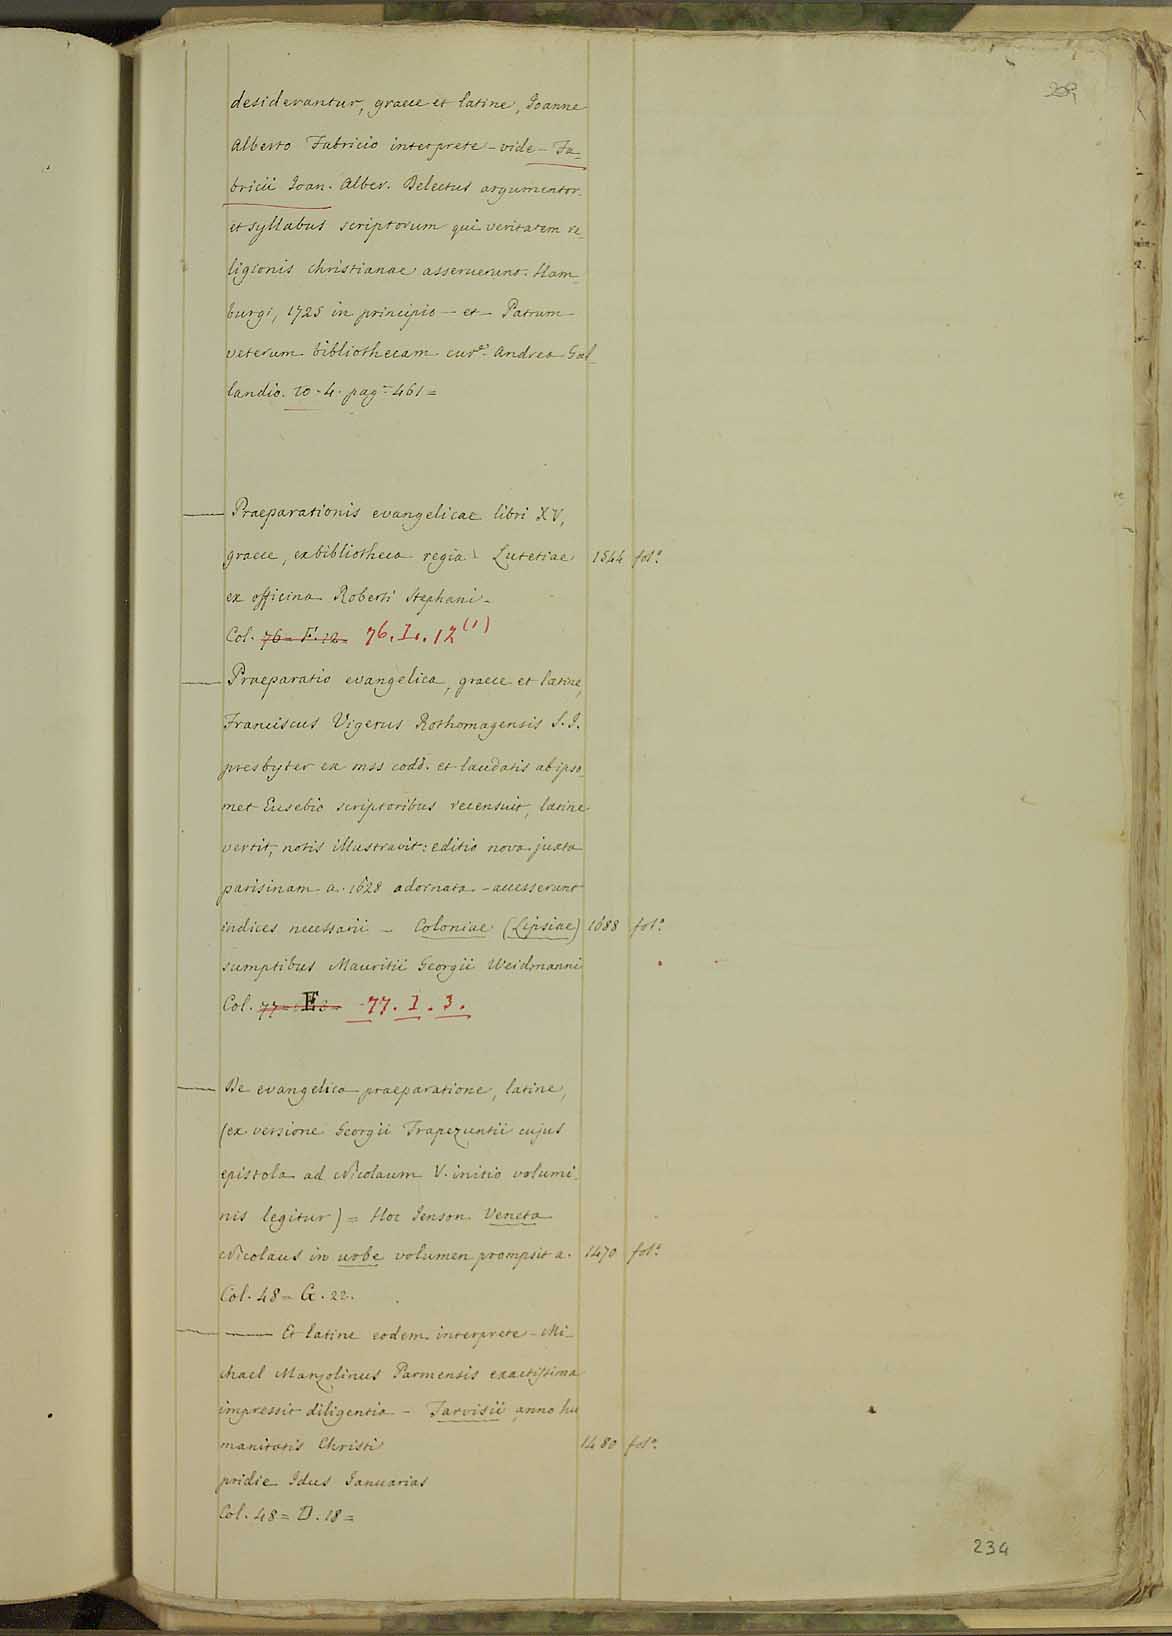 desiderantur, graece et latine, Joanne
Alberto Fabricio interprete - vide - Fa-
bricii Joan. Alber. Delectus argumentor.
et syllabus scriptorum qui veritatem re-
ligionis christianae asseruerunt. Ham-
burgi, 1725 in principio - et - Patrum
veterum bibliothecam cur.e Andrea Gal-
landio. to. 4. pag. 461 =
— Praeparationis evangelicae libri XV,
graece, ex bibliotheca regia. Lutetiae 1544 fol.o
ex officina Roberti Stephani -
Col. 76 = F. 12. 76. I. 12 (1)
— Praeparatio evangelica, graece et latine,
Franciscus Vigerus Rothomagensis S. J.
presbyter ex mss codd. et laudatis ab ipso-
met Eusebio scriptoribus recensuit, latine
vertit, notis illustravit: editio nova juxta
parisinam a. 1628 adornata - accesserunt
indices necessarii - Coloniae (Lipsiae) 1688 fol.o
sumptibus Mauritii Georgii Weidmanni
Col. 77 = E 3 = 77. I. 3.
— De evangelica praeparatione, latine,
(ex versione Georgii Trapezuntii cujus
epistola ad Nicolaum V. initio volumi-
nis legitur) = Hoc Jenson Veneta
Nicolaus in urbe volumen prompsit a. 1470 fol.o
Col. 48 = G. 22.
— — Et latine eodem interprete - Mi-
chael Manzolinus Parmensis exactissima
impressit diligentia - Tarvisii anno hu
manitatis Christi 1480 fol.o
pridie Idus Januarias
Col. 48 = D. 18 =
234